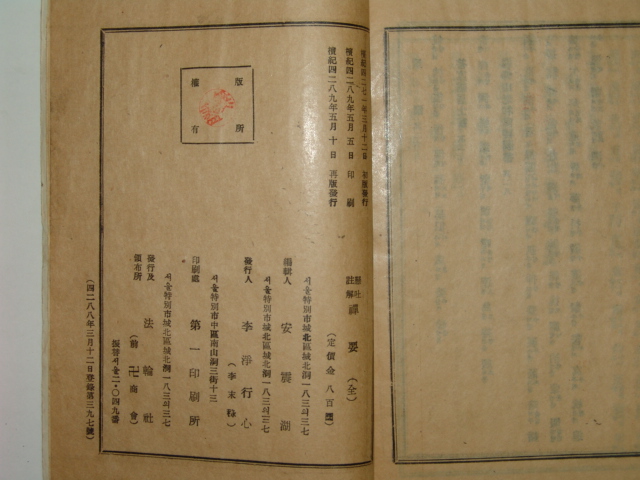 檀紀四二七一年三月十二日 初版發行
檀紀四二八九年五月五日 印刷
檀紀四二八九年五月十日 再版發行
版權所有
懸吐註解 禪要 (全)
(定價金 八百圜)
서울特別市城北區城北洞一八三의三七
編輯人 安震湖
서울特別市城北區城北洞一八三의三七
發行人 李淨行心
(李末粉)
서울特別市中區南山洞三街十三
印刷處 第一印刷所
서울特別市城北區城北洞一八三의三七
發行及頒布所 法輪社
(前卍商會)
振替서울二·〇四九番
(四二八八年三月十二日登錄第三九七號)